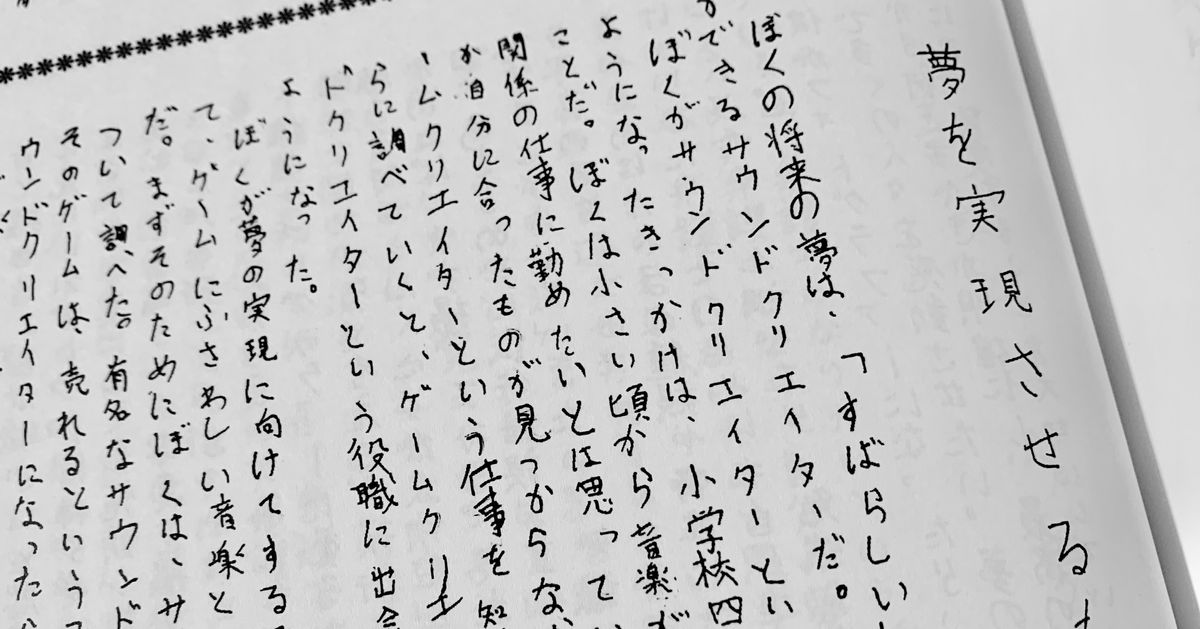 夢を実現させる
ぼくの将来の夢は、「すばらしい
ができるサウンドクリエイターだ。
ぼくがサウンドクリエイターとい
ようになったきっかけは、小学校四
ことだ。ぼくは小さい頃から音楽が
関係の仕事に勤めたいとは思ってい
か自分に合ったものが見つからな
ームクリエイターという仕事を知
らに調べていくと、ゲームクリエ
ドクリエイターという役職に出会
ようになった。
ぼくが夢の実現に向けてする
て、ゲームにふさわしい音楽と
だ。まずそのためにぼくは、サ
ついて調べた。有名なサウンド
そのゲームは、売れるという
ウンドクリエイターになった